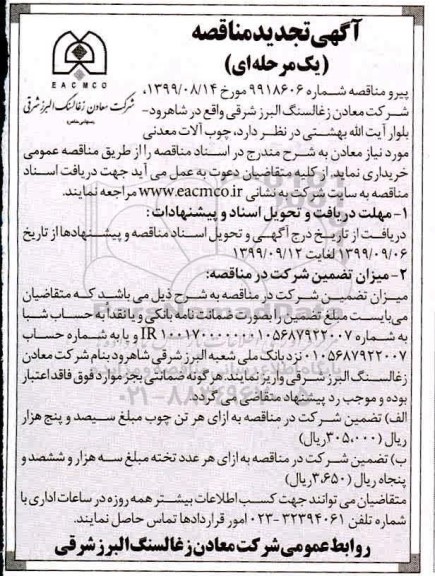 آگهی تجدید مناقصه
(یک مرحله ای)
EACMCO
شرکت معادن زغالسنگ البرز شرقی
(سهامی خاص)
پیرو مناقصه شماره ۹۹۱۸۶۰۶ مورخ ۱۳۹۹/۰۸/۱۴،
شرکت معادن زغالسنگ البرز شرقی واقع در شاهرود-
بلوار آیت الله بهشتی در نظر دارد، چوب آلات معدنی
مورد نیاز معادن به شرح مندرج در اسناد مناقصه را از طریق مناقصه عمومی
خریداری نماید. از کلیه متقاضیان دعوت به عمل می آید جهت دریافت اسناد
مناقصه به سایت شرکت به نشانی www.eacmco.ir مراجعه نمایند.
۱- مهلت دریافت و تحویل اسناد و پیشنهادات:
دریافت از تاریخ درج آگهی و تحویل اسناد مناقصه و پیشنهادها از تاریخ
۱۳۹۹/۰۹/۰۶ لغایت ۱۳۹۹/۰۹/۱۲
۲- میزان تضمین شرکت در مناقصه:
میزان تضمین شرکت در مناقصه به شرح ذیل می باشد که متقاضیان
می بایست مبلغ تضمین را بصورت ضمانت نامه بانکی و یا نقداً به حساب شبا
به شماره IR ۱۰۰۱۷۰۰۰۰۰۰۰۱۰۵۶۸۷۹۲۲۰۰۷ و یا به شماره حساب
۰۱۰۵۶۸۷۹۲۲۰۰۷ نزد بانک ملی شعبه البرز شرقی شاهرود بنام شرکت معادن
زغالسنگ البرز شرقی واریز نمایند. هرگونه ضمانتی بجز موارد فوق فاقد اعتبار
بوده و موجب رد پیشنهاد متقاضی می گردد.
الف) تضمین شرکت در مناقصه به ازای هر تن چوب مبلغ سیصد و پنج هزار
ریال (۳۰۵,۰۰۰ ریال)
ب) تضمین شرکت در مناقصه به ازای هر عدد تخته مبلغ سه هزار و ششصد و
پنجاه ریال (۳,۶۵۰ ریال)
متقاضیان می توانند جهت کسب اطلاعات بیشتر همه روزه در ساعات اداری با
شماره تلفن ۳۲۳۹۴۰۶۱-۰۲۳ امور قراردادها تماس حاصل نمایند.
روابط عمومی شرکت معادن زغالسنگ البرز شرقی